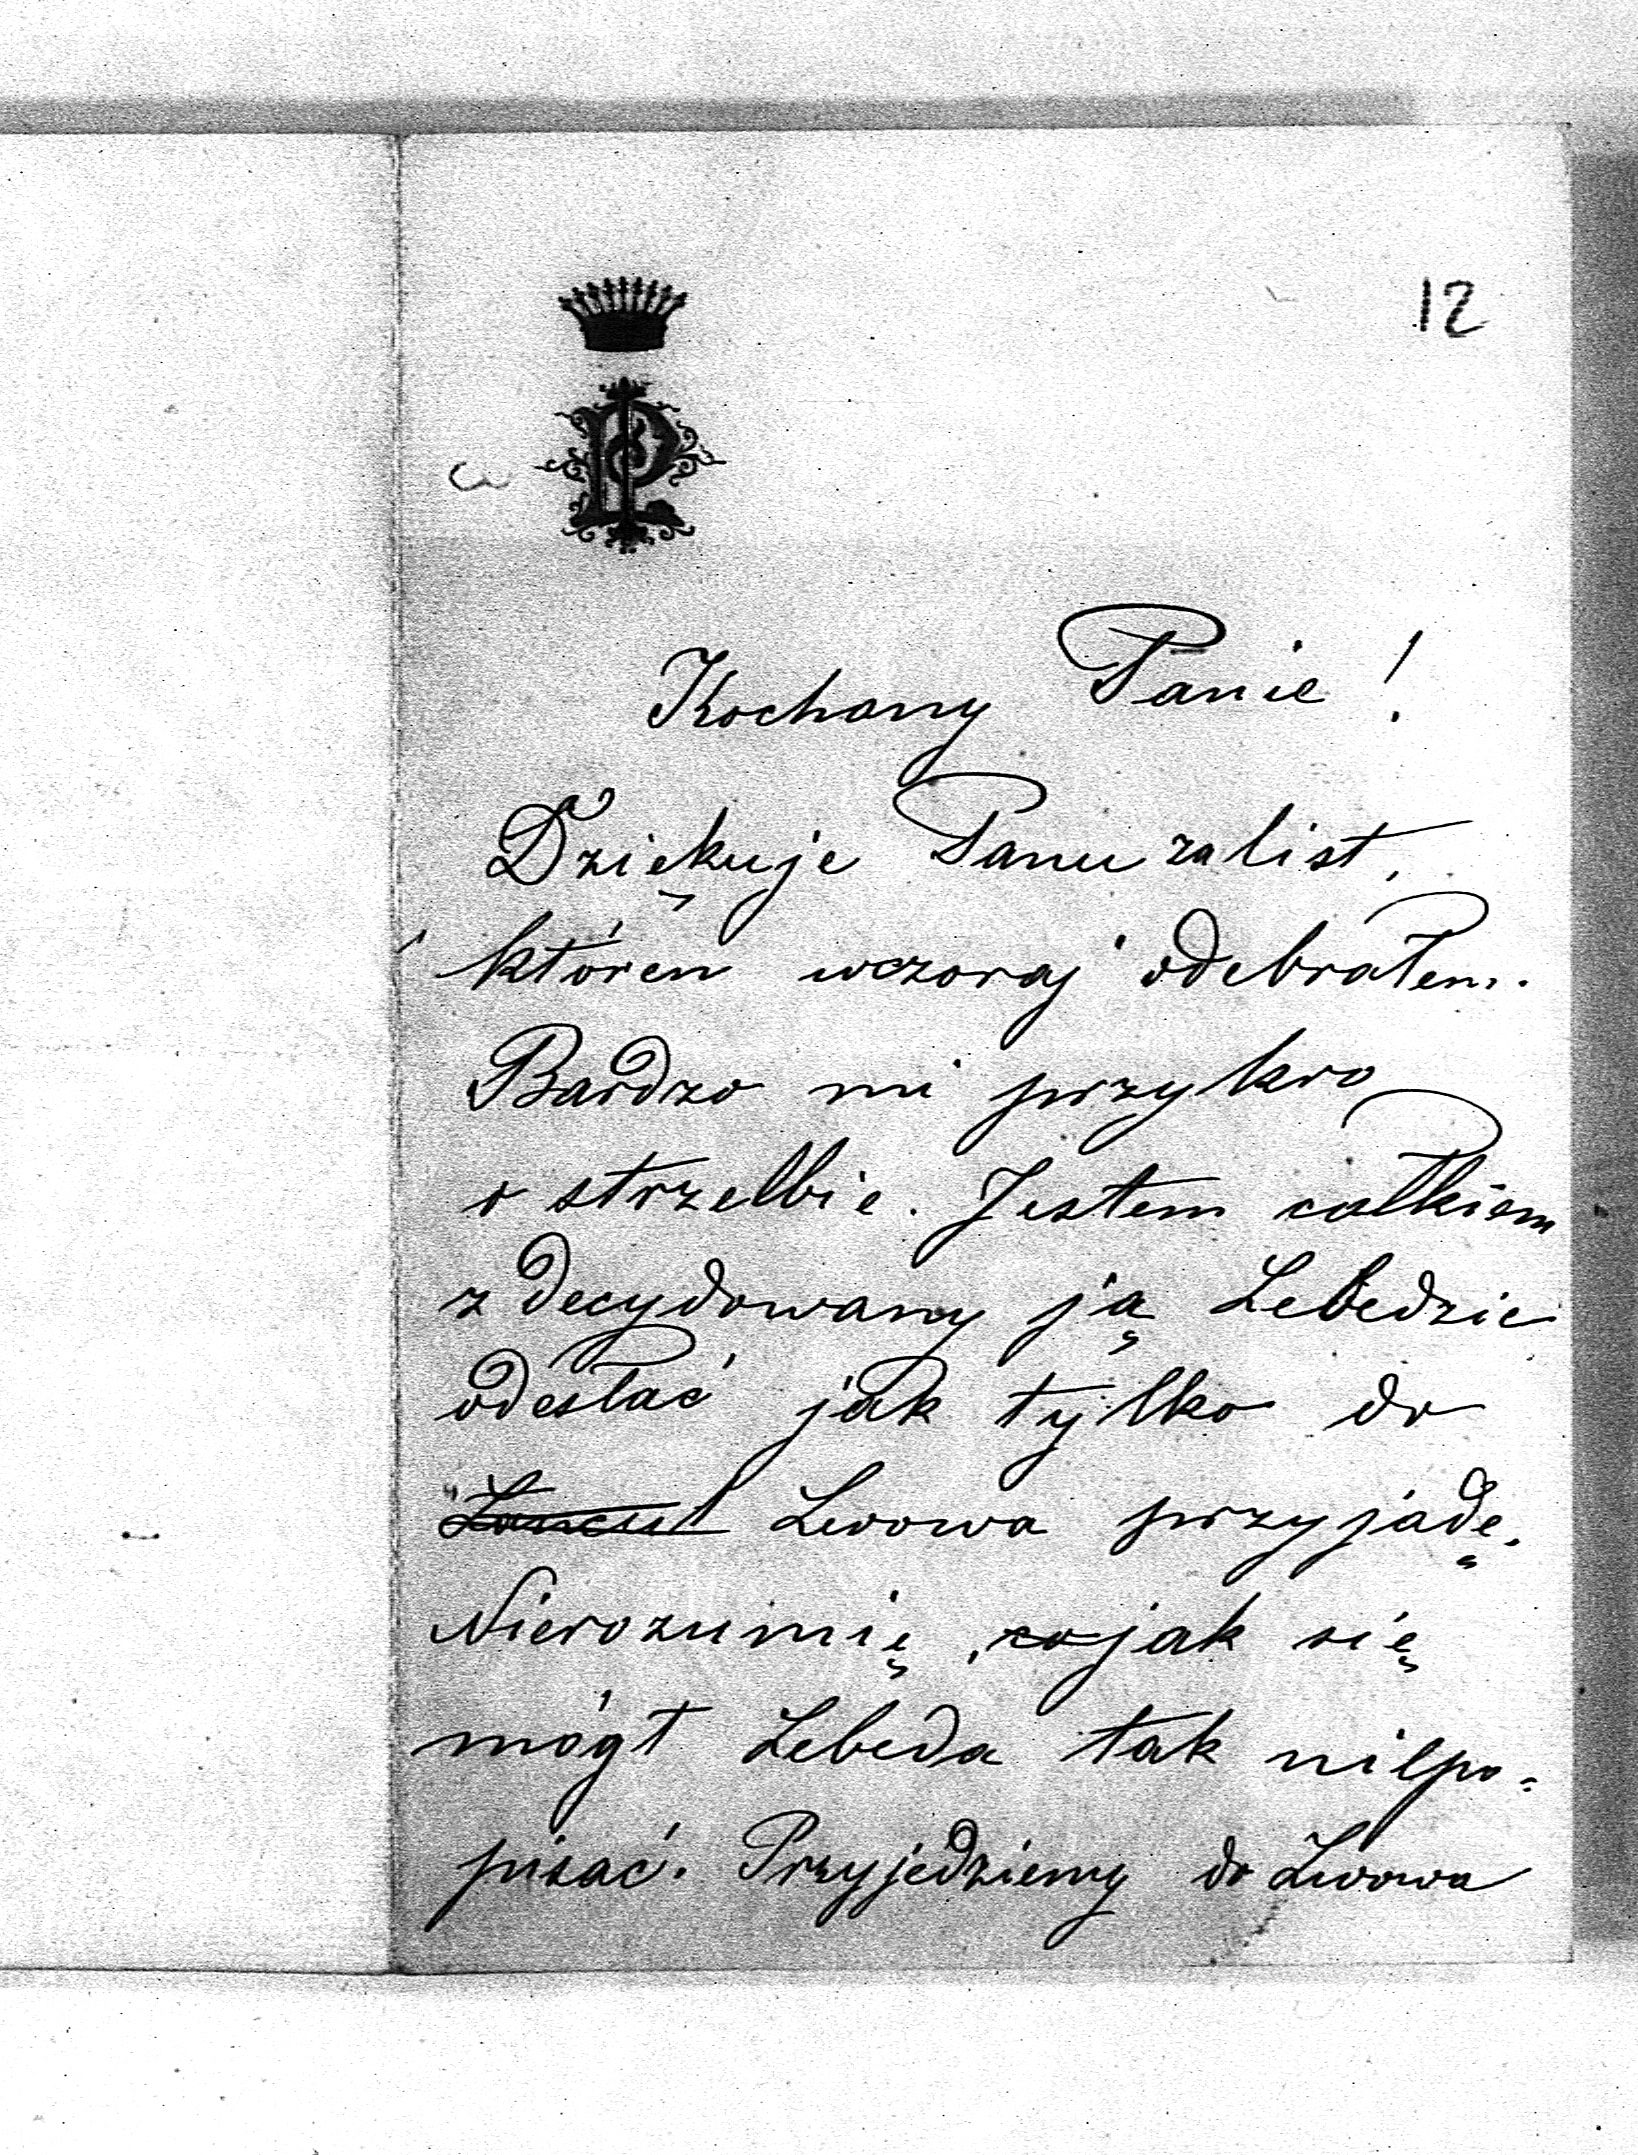 12
Kochany Panie!
Dziękuje Panu za list,
któren wczoraj odebrałem.
Bardzo mi przykro
o strzelbie. Jestem całkiem
zdecydowany ją Lebedzie
odesłać jak tylko do
Łańcut Lwowa przyjadę.
Nierozumię, co jak się
mógł Lebeda tak niepo-
pisać. Przyjedziemy do Lwowa